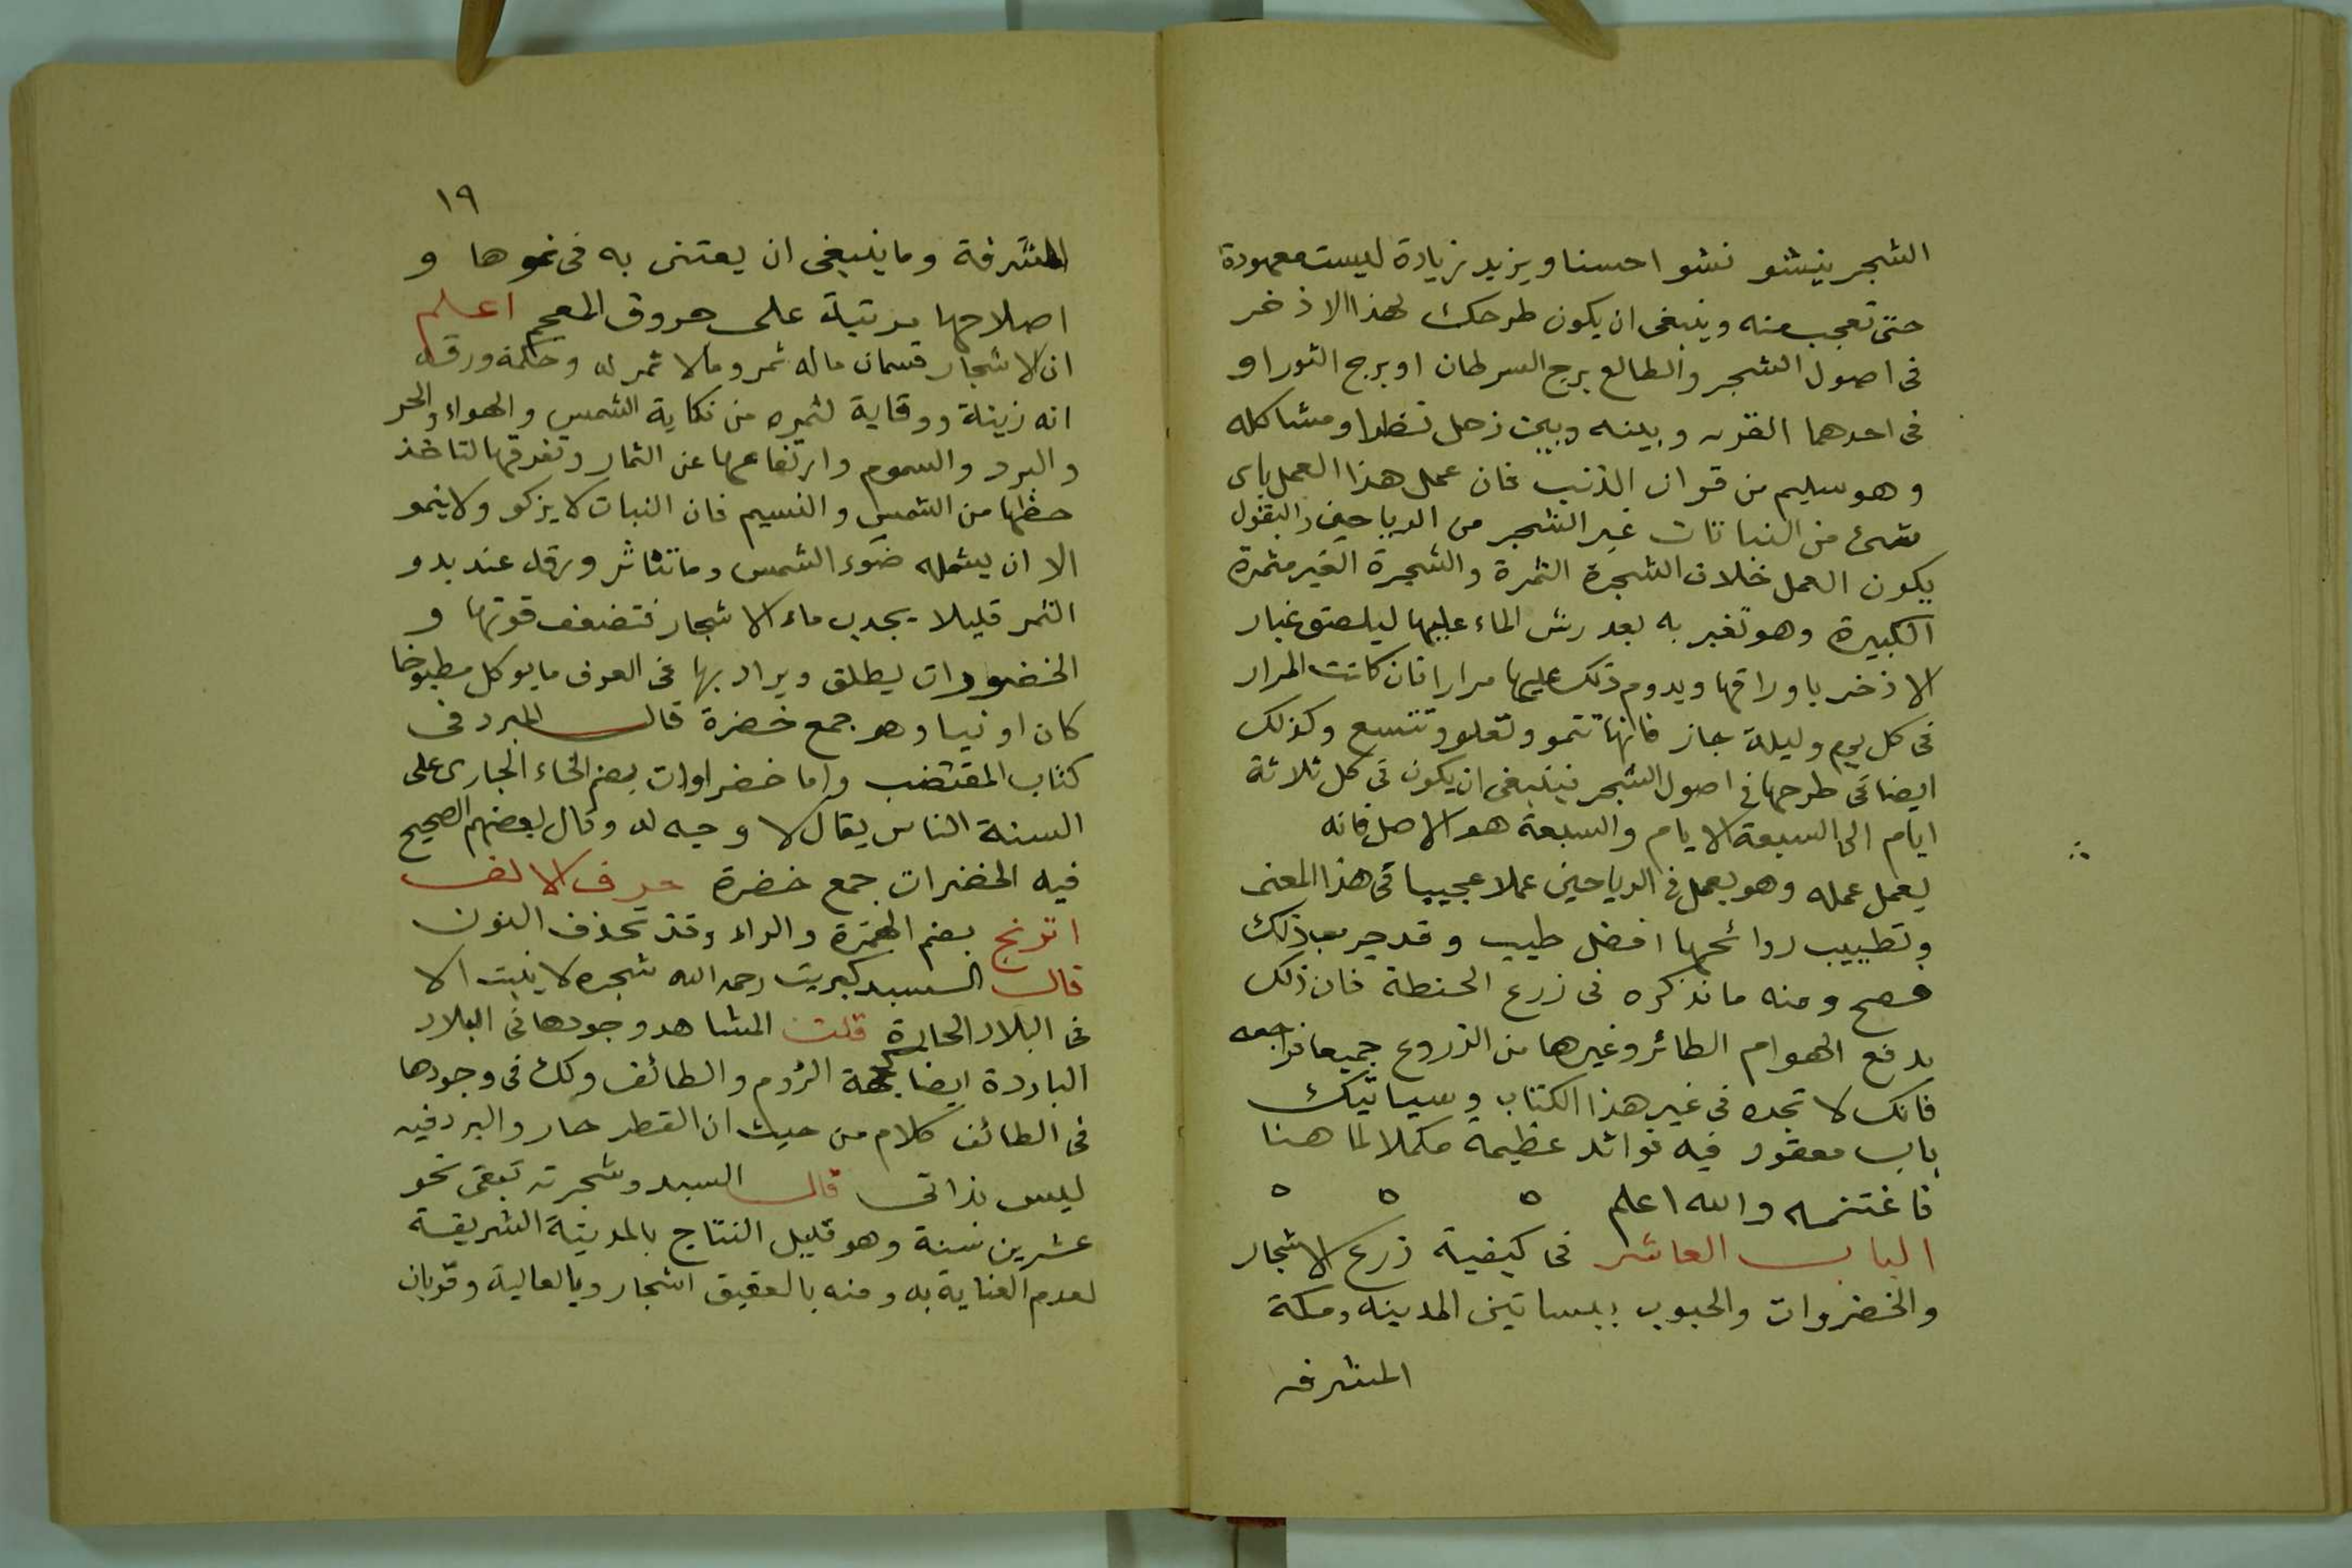 الشجر ينشو نشوا حسنا ويزيد زيادة ليست معهودة
حتى تعجب منه وينبغى ان يكون طرحك لهذا الاذخر
فى اصول الشجر والطالع برج السرطان او برج الثور او
فى احدهما القمر وبينه وبين زحل نظر او مشاكله
وهو سليم من قران الذنب فان عمل هذا العمل باى
شئ من النباتات غير الشجر من الرياحين والبقول
يكون العمل خلاف الشجرة الثمرة والشجرة الغير مثمرة
الكبيرة وهو تغبر به بعد رش الماء عليها ليلصق غبار
الاذخر باوراقها ويدوم ذلك عليها مرارا فان كانت المرار
فى كل يوم وليلة جاز فانها تنمو وتعلو وتتسع وكذلك
ايضا فى طرحها فى اصول الشجر فينبغى ان يكون فى كل ثلاثة
ايام الى السبعة الايام والسبعة هو الاصل فانه
يعمل عمله وهو يعمل فى الرياحين عملا عجيبا فى هذا المعنى
وتطييب روائحها افضل طيب وقد جرب ذلك
فصح ومنه ما نذكره فى زرع الحنطة فان ذلك
يدفع الهوام الطائر وغيرها من الزروع جميعا فراجعه
فانك لا تجده فى غير هذا الكتاب وسياتيك
باب معقود فيه فوائد عظيمة مكملا لما هنا
فاغتنمه والله اعلم ه ه ه
الباب العاشر فى كيفية زرع الاشجار
والخضروات والحبوب ببساتين المدينه ومكة
المشرفه
١٩
المشرفة وما ينبغى ان يعتنى به فى نموها و
اصلاحها مرتبة على حروف المعجم اعلم
ان الاشجار قسمان ماله ثمر وما لا ثمر له وحكمة ورقه
انه زينة ووقاية لثمره من نكاية الشمس والهواء والحر
والبرد والسموم وارتفاعها عن الثمار وتفرقها لتاخذ
حظها من الشمس والنسيم فان النبات لا يزكو ولا ينمو
الا ان يشمله ضوء الشمس وما تناثر ورقه عند بدو
الثمر قليلا يجدب ماء الاشجار فتضعف قوتها و
الخضورات يطلق ويراد بها فى العرف ما يوكل مطبوخا
كان او نيا وهو جمع خضرة قال المبرد فى
كتاب المقتضب واما خضراوات بضم الخاء الجارى على
السنة الناس يقال لا وجه له وقال بعضهم الصحيح
فيه الخضرات جمع خضرة حرف الالف
اترنج بضم الهمزة والراء وقد تحذف النون
قال السيد كبريت رحمه الله شجره لا ينبت الا
فى البلاد الحارة قلت المشاهد وجودها فى البلاد
الباردة ايضا كجهة الروم والطائف ولك فى وجودها
فى الطائف كلام من حيث ان القطر حار والبرد فيه
ليس بذاتى قال السيد وشجرته تبقى نحو
عشرين سنة وهو قليل النتاج بالمدينة الشريفة
لعدم العناية به ومنه بالعقيق اشجار وبالعالية وقربان